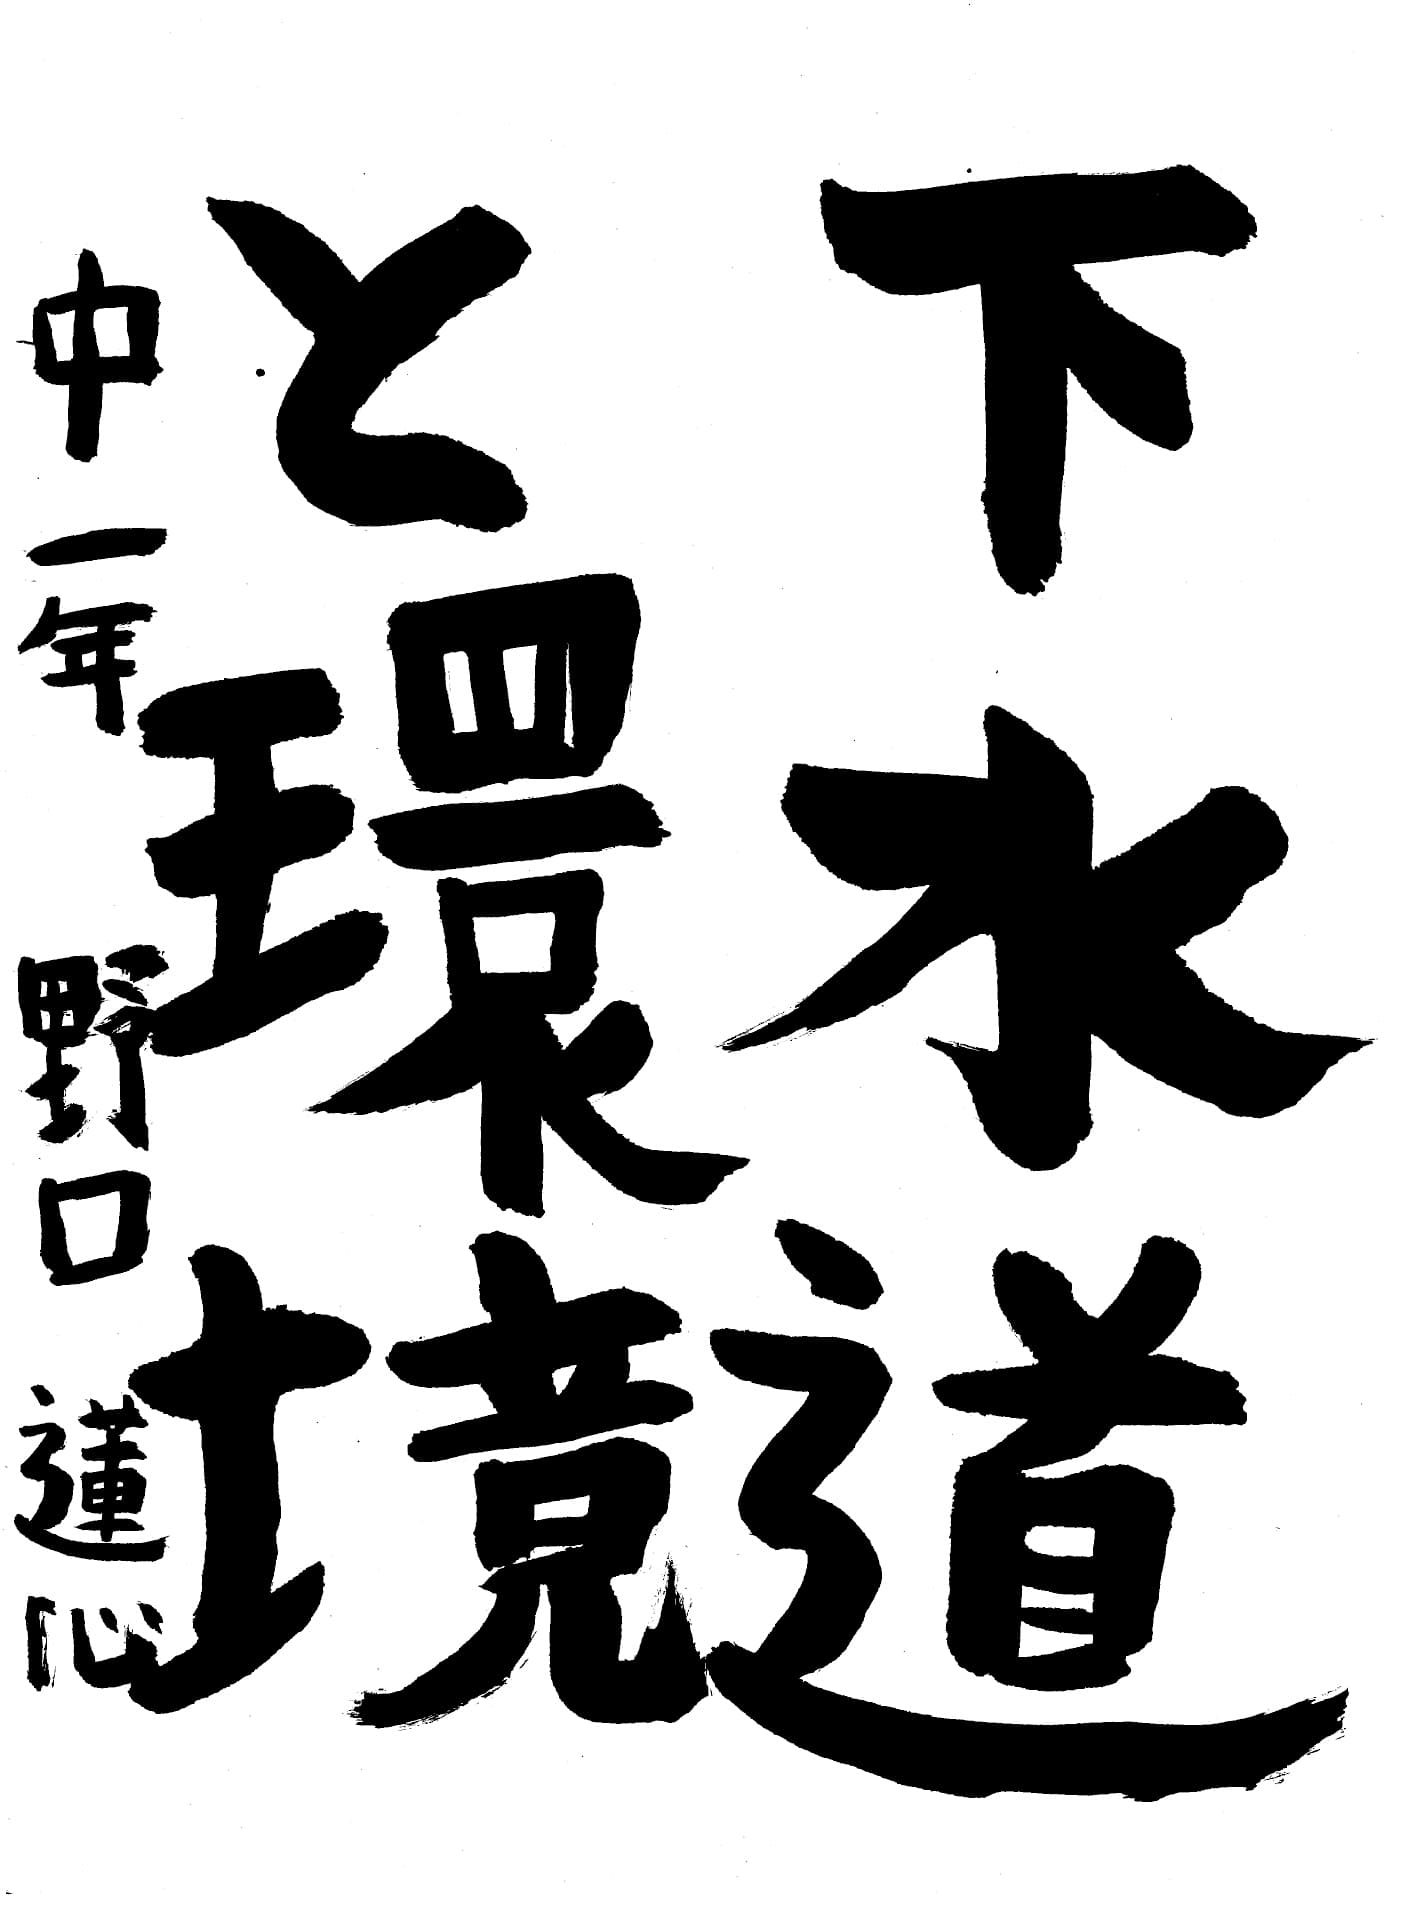 下水道
と環境
中一年 野口 蓮心